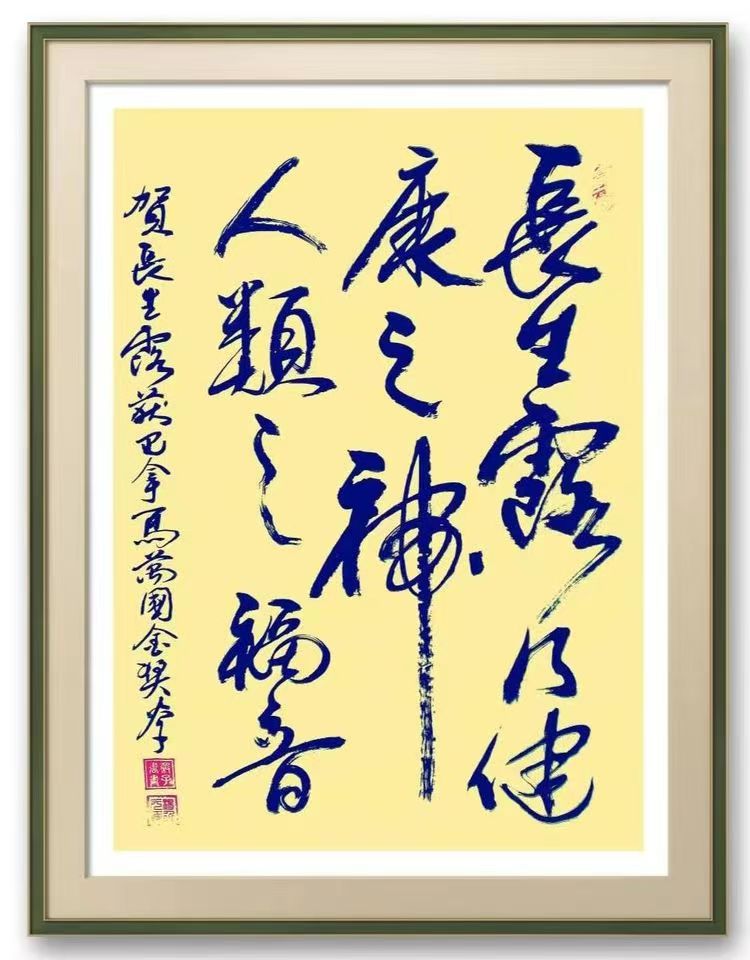 長生露乃健
康之神
人類之福音
贺長生露获巴拿馬萬國金奖